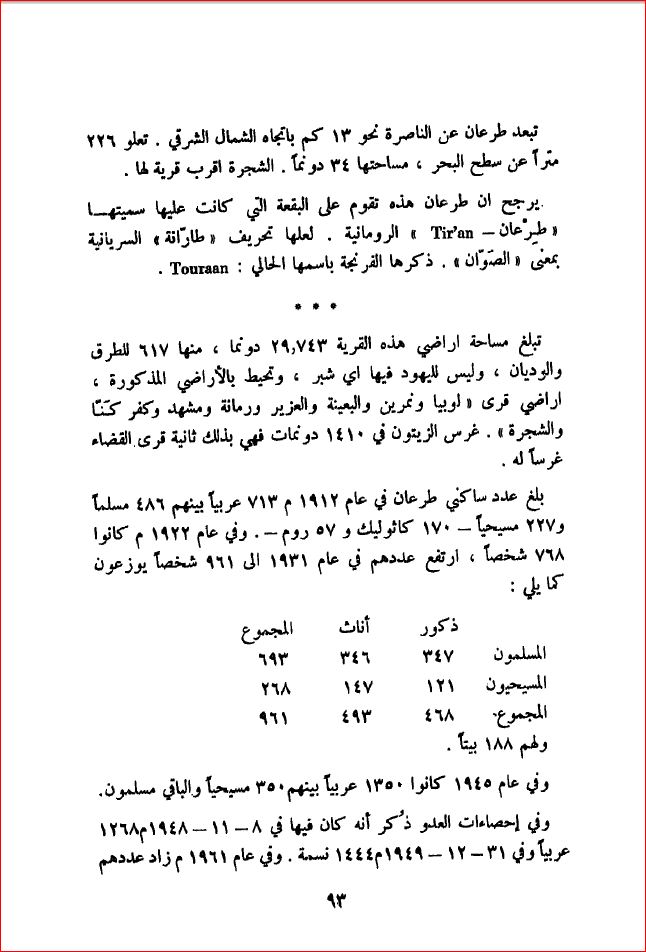 تبعد طرعان عن الناصرة نحو ١٣ كم باتجاه الشمال الشرقي . تعلو ٢٢٦
متراً عن سطح البحر ، مساحتها ٣٤ دونماً . الشجرة اقرب قرية لها .
يرجح ان طرعان هذه تقوم على البقعة التي كانت عليها سميتهـــا
« طِيرْعان – Tir'an » الرومانية . لعلها تحريف « طارّانة » السريانية
بمعنى « الصَوّان » . ذكرها الفرنجة باسمها الحالي : Touraan .
* * *
تبلغ مساحة اراضي هذه القرية ٢٩,٧٤٣ دونما ، منها ٦١٧ للطرق
والوديان ، وليس لليهود فيها اي شبر ، وتحيط بالأراضي المذكورة ،
اراضي قرى « لوبيا ونمرين والبعينة والعزير ورمانة ومشهد وكفر كَنّا
والشجرة » . غرس الزيتون في ١٤١٠ دونمات فهي بذلك ثانية قرى القضاء
غرساً له .
بلغ عدد ساكني طرعان في عام ١٩١٢ م ٧١٣ عربياً بينهم ٤٨٦ مسلماً
و٢٢٧ مسيحياً – ١٧٠ كاثوليك و ٥٧ روم – . وفي عام ١٩٢٢ م كانوا
٧٦٨ شخصاً ، ارتفع عددهم في عام ١٩٣١ الى ٩٦١ شخصاً يوزعون
كما يلي :
ذكور أناث المجموع
المسلمون ٣٤٧ ٣٤٦ ٦٩٣
المسيحيون ١٢١ ١٤٧ ٢٦٨
المجموع ٤٦٨ ٤٩٣ ٩٦١
ولهم ١٨٨ بيتاً .
وفي عام ١٩٤٥ كانوا ١٣٥٠ عربياً بينهم ٣٥٠ مسيحياً والباقي مسلمون.
وفي إحصاءات العدو ذُكر أنه كان فيها في ٨ – ١١ – ١٩٤٨م ١٢٦٨
عربياً وفي ٣١ – ١٢ – ١٩٤٩م ١٤٤٤ نسمة . وفي عام ١٩٦١ م زاد عددهم
٩٣